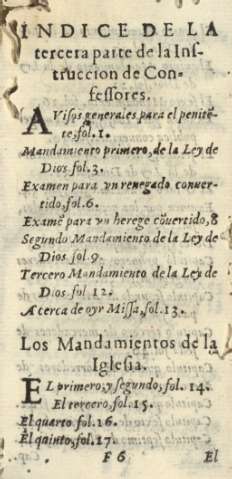 INDICE DE LA
tercera parte de la Ins-
truccion de Con-
fessores.
AVisos generales para el penitẽ-
te, fol. 1.
Mandamiento primero, de la Ley de
Dios. fol. 3.
Examen para vn renegado conuer-
tido, fol. 6.
Examẽ para vn herege cõuertido, 8
Segundo Mandamiento de la Ley de
Dios fol. 9.
Tercero Mandamiento de la Ley de
Dios. fol 12.
Acerca de oyr Missa, fol. 13.
Los Mandamientos de la
Iglesia.
EL primero, y segundo, fol. 14.
El tercero, fol. 15.
El quarto fol. 16.
El quinto, fol. 17.
F 6 El